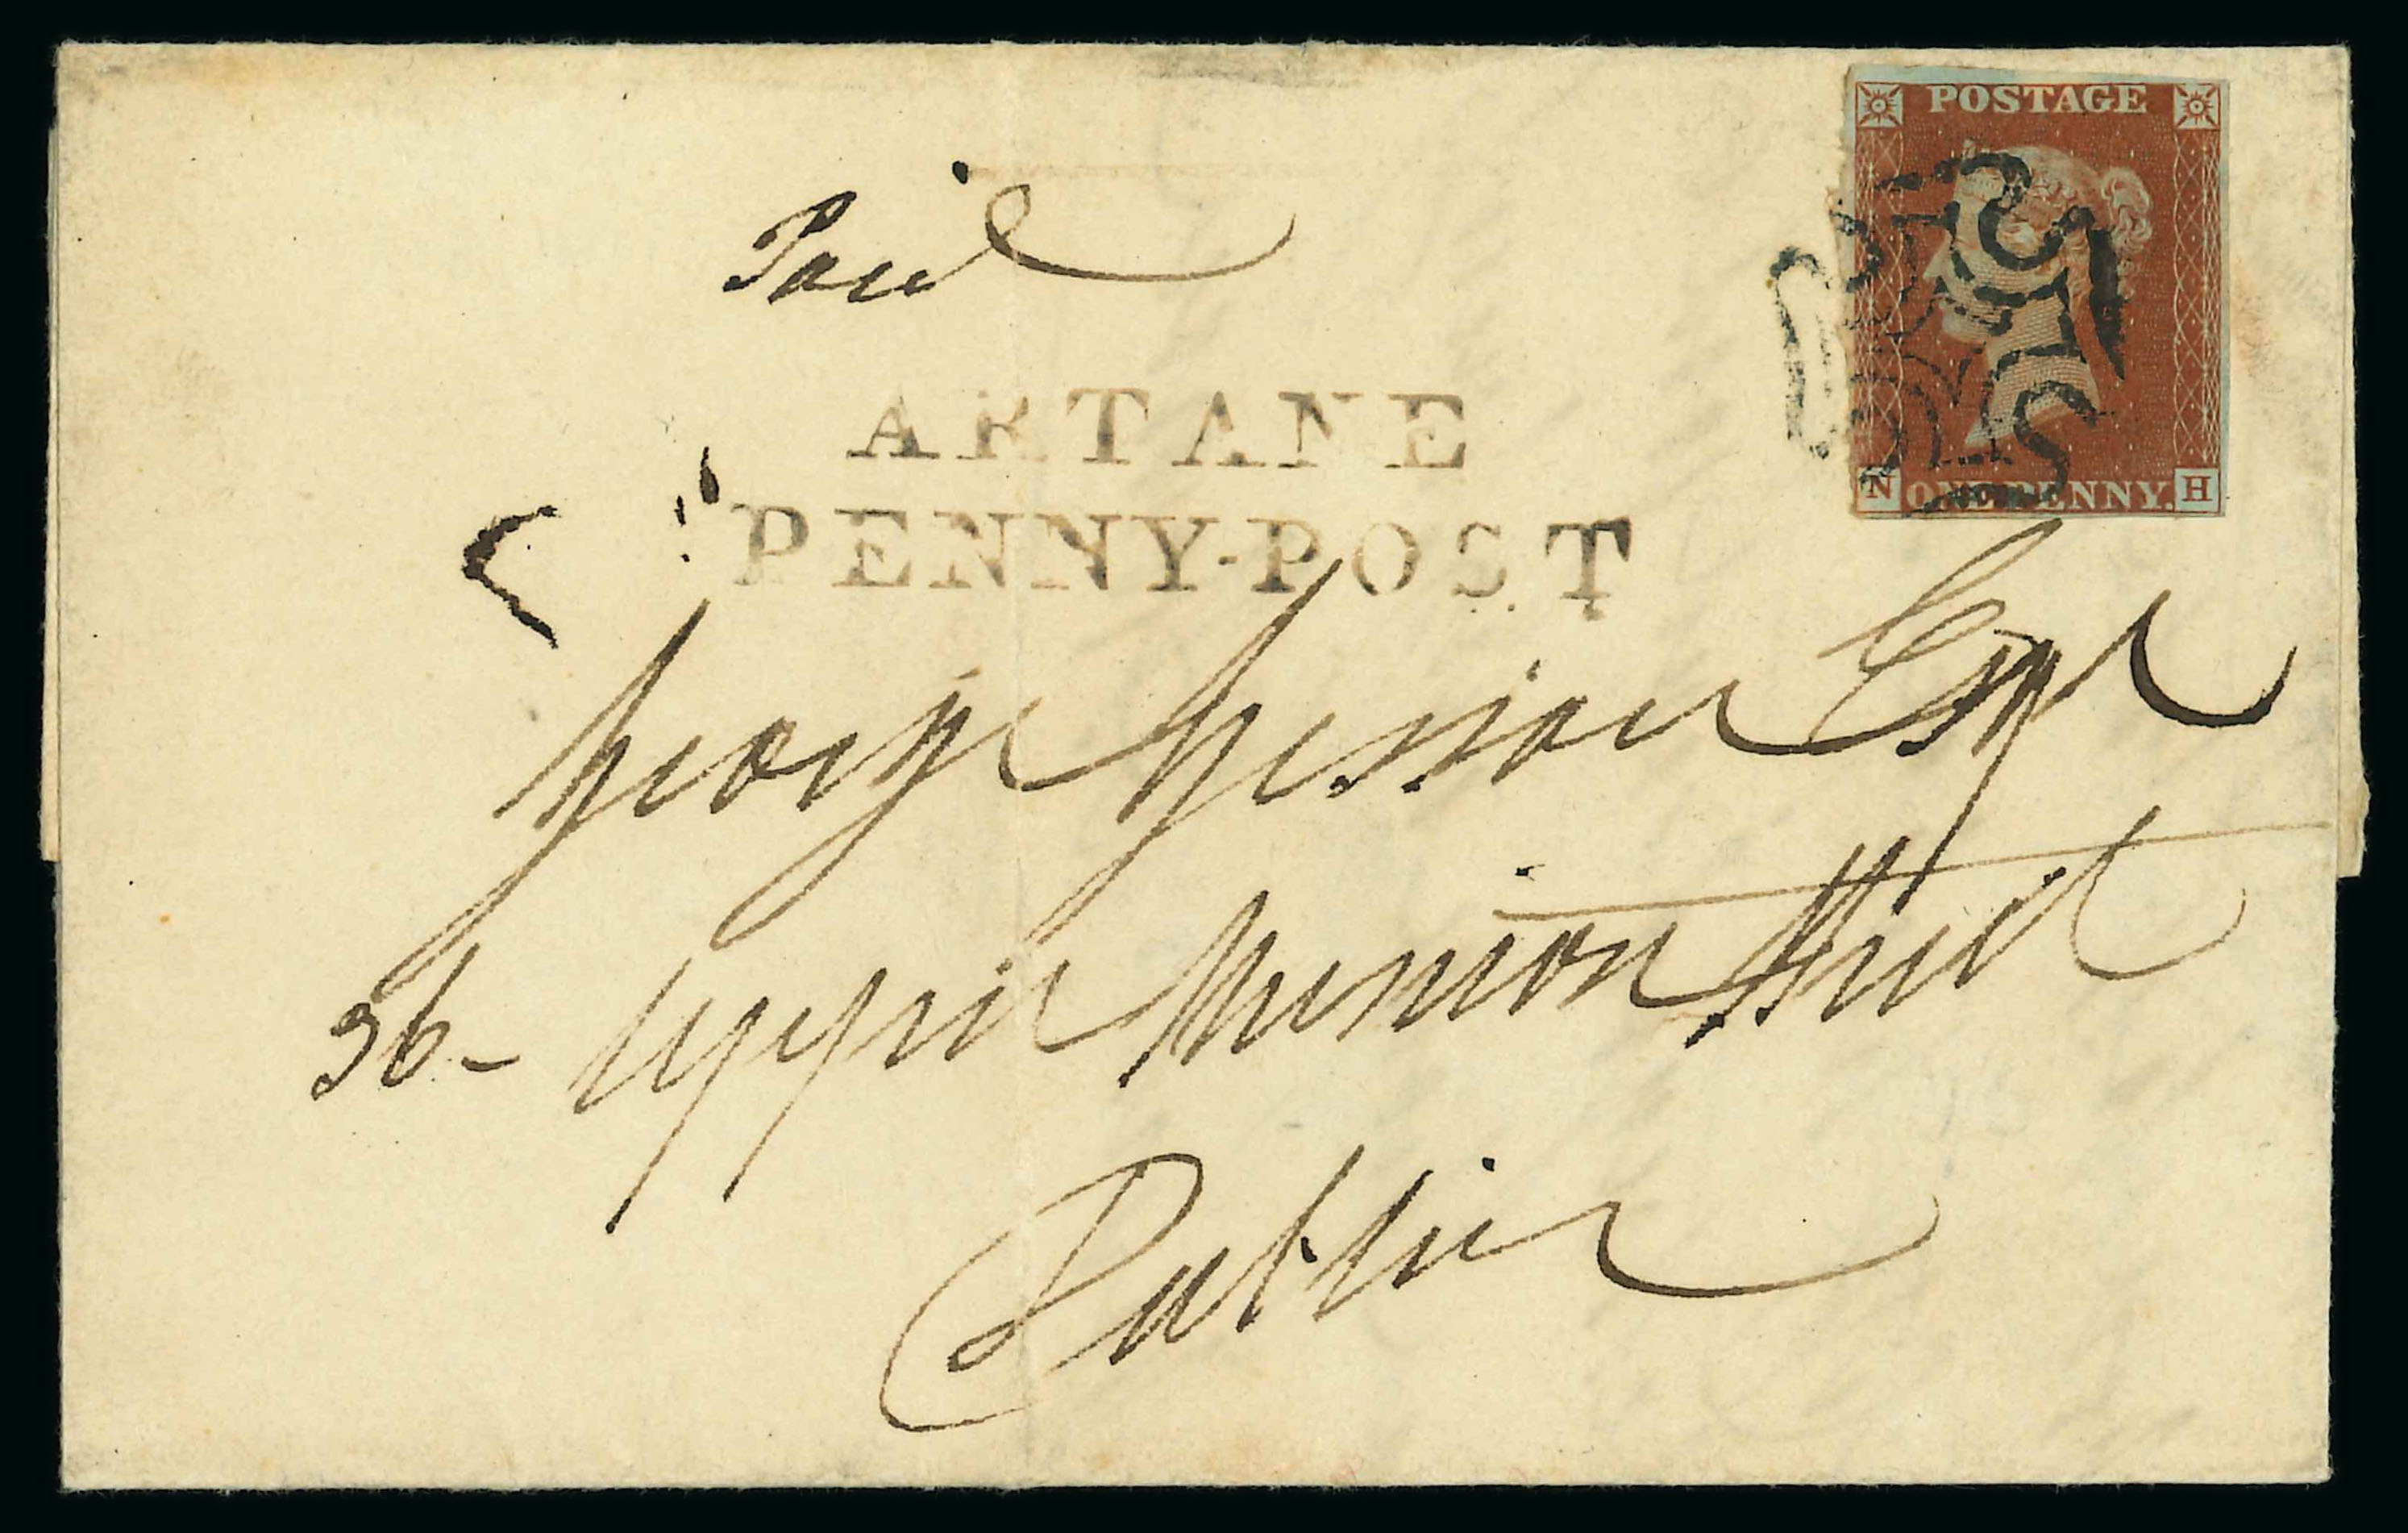 POSTAGE
N ONE PENNY. H
Paid
ARTANE
PENNY-POST
George Esqr
36- Upper Merrion Street
Dublin